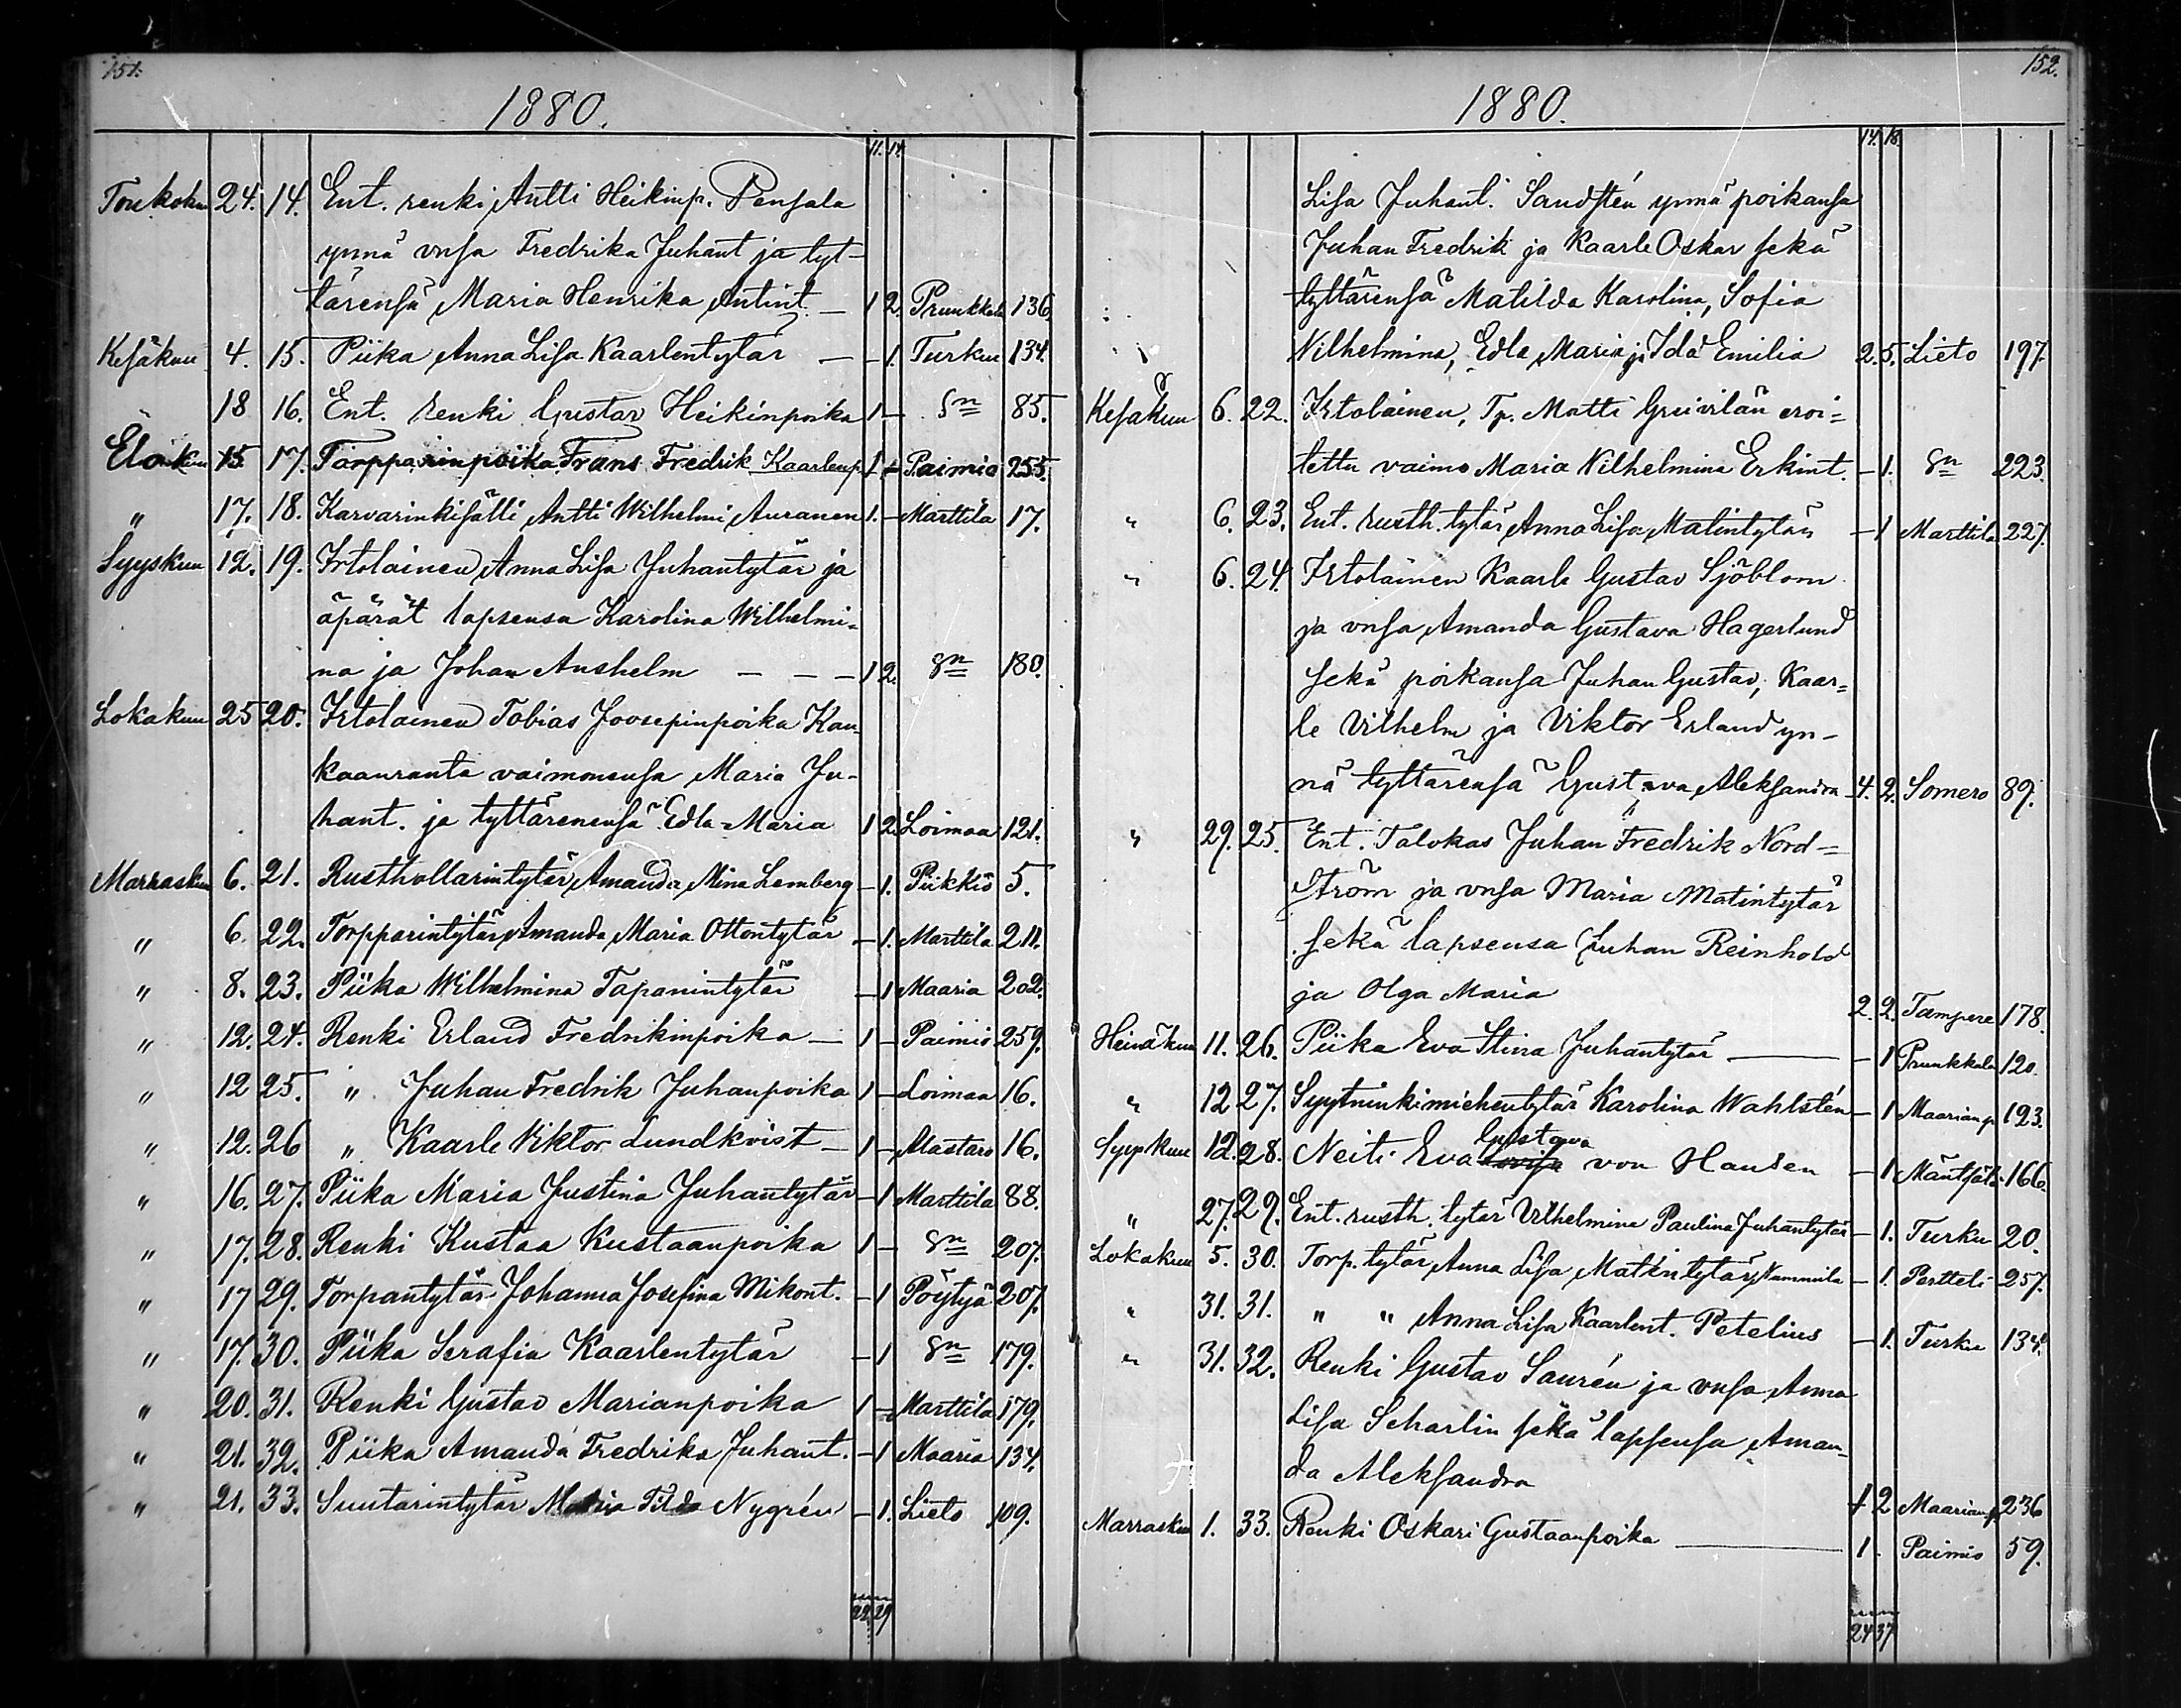 151.
1880.
11. 14.
Toukokuu 24. 14. Ent. renki Antti Heikinp. Pensala
ynnä vnsa Fredrika Juhant ja tyt-
tärensä Maria Henrika Antint. — 1 2. Prunkkala 136.
Kesäkuu 4. 15. Piika Anna Lisa Kaarlentytär — — 1. Turkuu 134.
18 16. Ent. renki Gustav Heikinpoika 1 — Sn 85.
Elokuu 15 17. Torpparinpoika Frans Fredrik Kaarlenp. 1 — Paimio 255.
" 17. 18. Karvarinkisälli Antti Wilhelmi Auranen 1. — Marttila 17.
Syyskuu 12. 19. Irtolainen Anna Lisa Juhantytär ja
äpärät lapsensa Karolina Wilhelmi-
na ja Johan Anshelm — — — 1 2. Sn 180.
Lokakuu 25 20. Irtolainen Tobias Joosepinpoika Kan-
kaanranta vaimonensa Maria Ju-
hant. ja tyttärenensä Edla Maria 1 2. Loimaa 121.
Marraskuu 6. 21. Rusthollarintytär Amanda Mina Lemberg — 1. Piikkiö 5.
" 6. 22. Torpparintytär Amanda Maria Ottontytär — 1. Marttila 211.
" 8. 23. Piika Wilhelmina Tapanintytär — 1 Maaria 202.
" 12. 24. Renki Erland Fredrikinpoika — 1 — Paimio 259.
" 12 25. " Juhan Fredrik Juhanpoika 1 — Loimaa 16.
" 12. 26 " Kaarle Viktor Lundkvist — 1 — Alastaro 16.
" 16. 27. Piika Maria Justina Juhantytär — 1 Marttila 88.
" 17. 28. Renki Kustaa Kustaanpoika 1 — Sn 207.
" 17 29. Torpantytär Johanna Josefina Mikont. — 1 Pöytyä 207.
" 17. 30. Piika Serafia Kaarlentytär — 1 Sn 179.
" 20. 31. Renki Gustav Marianpoika 1 — Marttila 179.
" 21. 32. Piika Amanda Fredrika Juhant. — 1 Maaria 134.
" 21. 33. Suutarintytär Maria Tilda Nygrén — 1. Lieto 109.
22 29
152.
1880.
14. 18.
Lisa Juhant. Sandstén ynnä poikansa
Juhan Fredrik ja Kaarle Oskar sekä
tyttärensä Matilda Karolina, Sofia
Vilhelmina, Edla Maria ja Ida Emilia 2. 5. Lieto 197.
Kesäkuu 6. 22. Irtolainen, Tp. Matti Greivilän eroi-
tettu vaimo Maria Vilhelmina Erkint. — 1. Sn 223.
" 6. 23. Ent. rusth. tytär Anna Lisa Matintytär — 1 Marttila 227.
" 6. 24. Irtolainen Kaarle Gustav Sjöblom
ja vnsa Amanda Gustava Hagerlund
sekä poikansa Juhan Gustav, Kaar-
le Vilhelm ja Viktor Erland yn-
nä tyttärensä Gustava Aleksandra 4. 2. Somero 89.
" 29. 25. Ent. Talokas Juhan Fredrik Nord-
ström ja vnsa Maria Matintytär
sekä lapsensa Juhan Reinhold
ja Olga Maria 2. 2. Tampere 178.
Heinäkuu 11. 26. Piika Eva Stina Juhantytär — — 1 Prunkkala 120.
" 12 27. Syytninkimiehentytär Karolina Wahlstén — 1 Maarian p. 193.
Syyskuu 12. 28. Neiti Eva Lovisa Gustava von Hausen — 1 Mäntsälä 166.
" 27. 29. Ent. rusth. tytär Vilhelmina Paulina Juhantytär — 1. Turku 20.
Lokakuu 5. 30. Torp. tytär Anna Lisa Matintytär Nummila — 1. Pertteli 257.
" 31. 31. " " Anna Lisa Kaarlent. Petelius — 1. Turku 134.
" 31. 32. Renki Gustav Saurén ja vnsa Anna
Lisa Scharlin sekä lapsensa Aman-
da Aleksandra 1 2 Maarian p. 236
Marraskuu 1. 33. Renki Oskari Gustaanpoika — 1 Paimio 59.
24 37